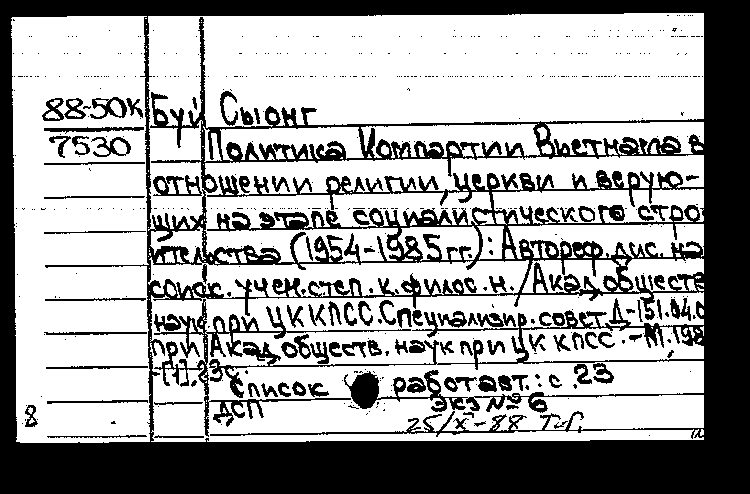 88-50к Буй Сыонг
7530 Политика Компартии Вьетнама в
отношении религии, церкви и верую-
щих на этапе социалистического стро
ительства (1954-1985 гг.): Автореф. дис. на
соиск. учен. степ. к. филос. н. / Акад. обществ
наук при ЦК КПСС. Специализир. совет Д-151.04.0
при Акад. обществ. наук при ЦК КПСС. - М. 198
-[1], 23 с.
Список работ авт.: с 23
8 ДСП Экз № 6
25/X-88 Т.Г.